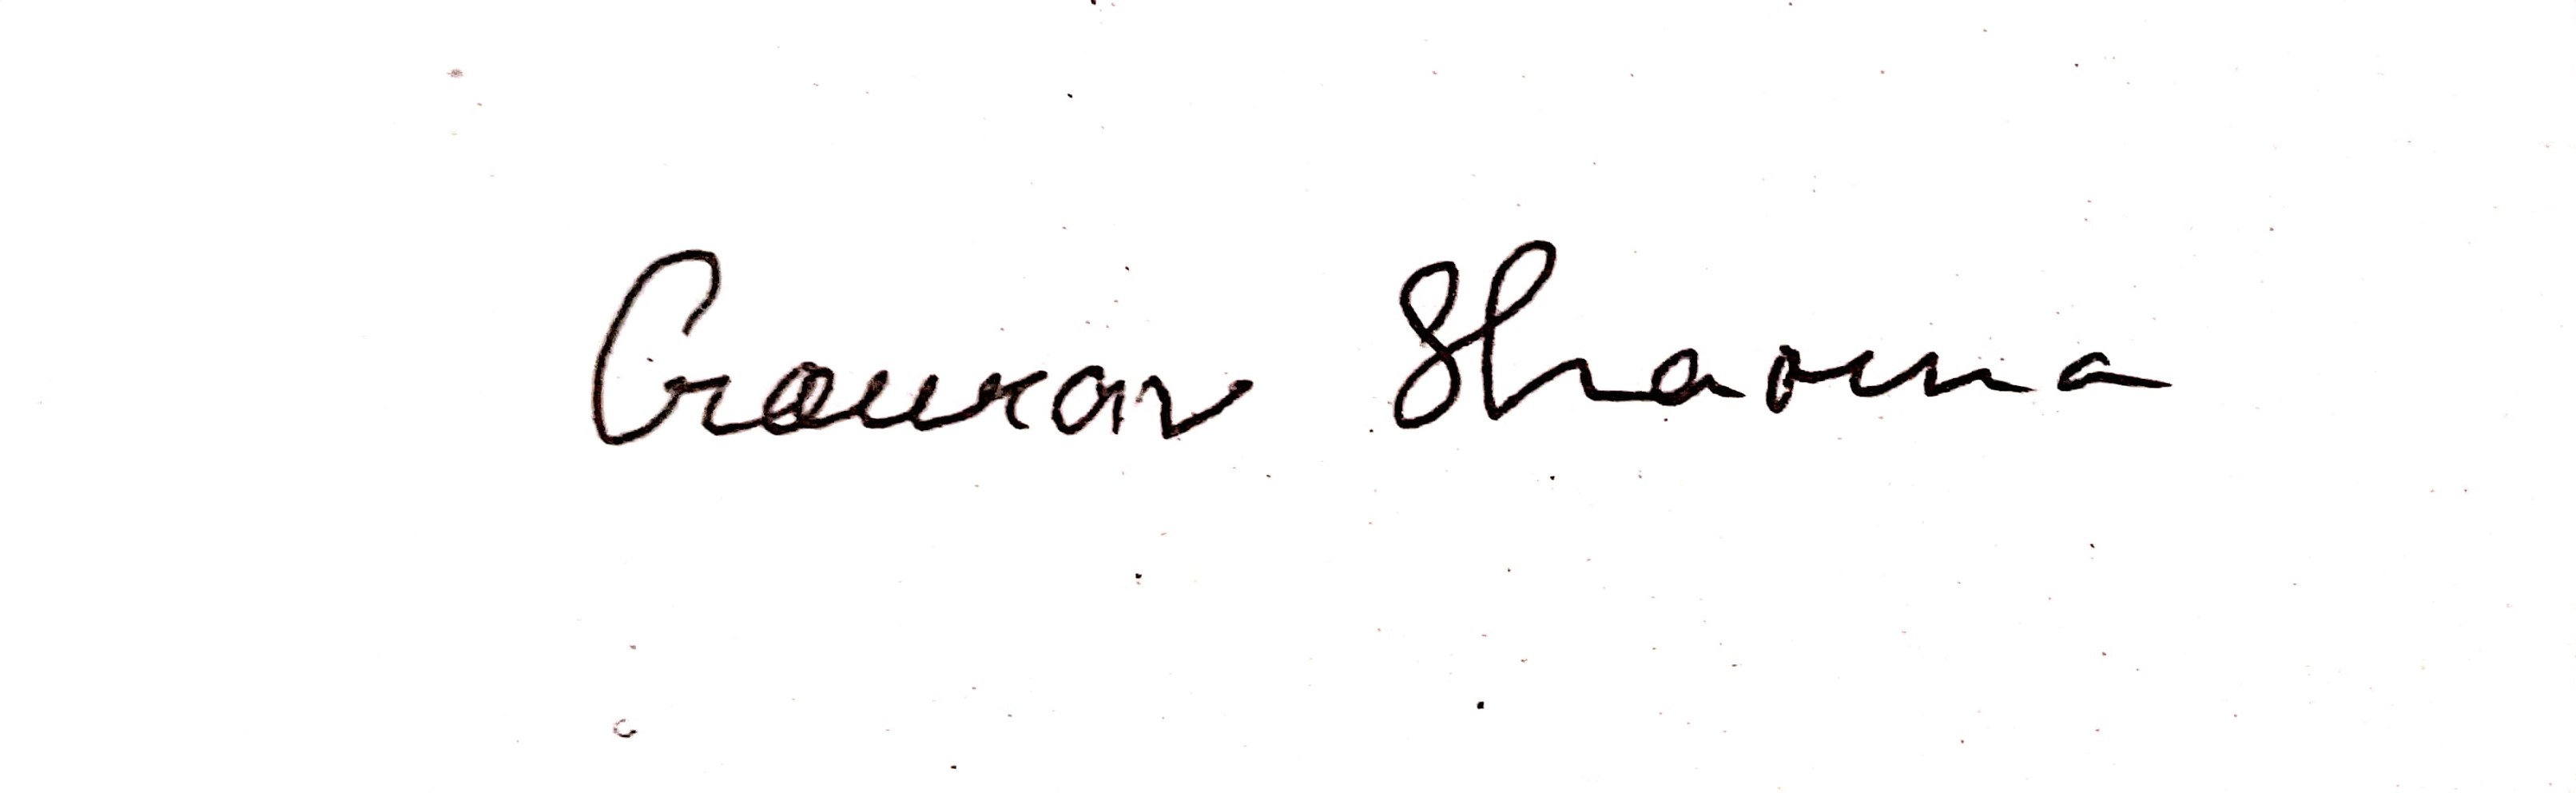 Gaurav Sharma